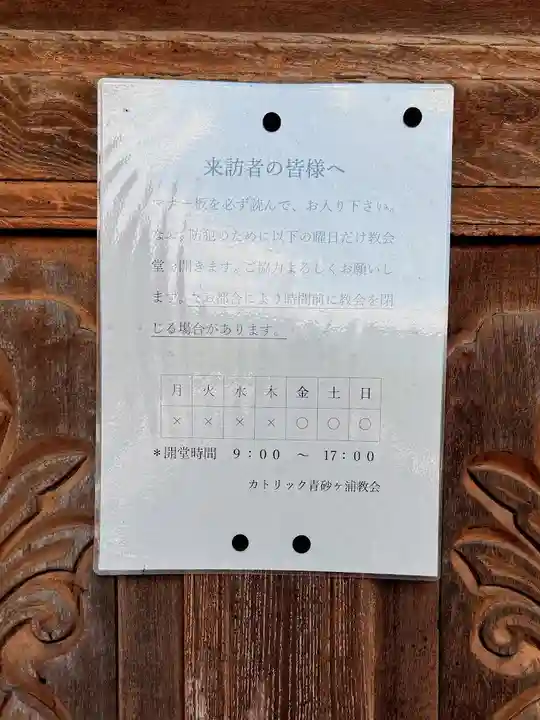 来訪者の皆様へ
マナー板を必ず読んで、お入り下さい。
なお、防犯のために以下の曜日だけ教会
堂を開きます。ご協力よろしくお願いし
ます。なお都合により時間前に教会を閉
じる場合があります。
月 火 水 木 金 土 日
× × × × ○ ○ ○
＊開堂時間 9：00 ～ 17：00
カトリック青砂ヶ浦教会